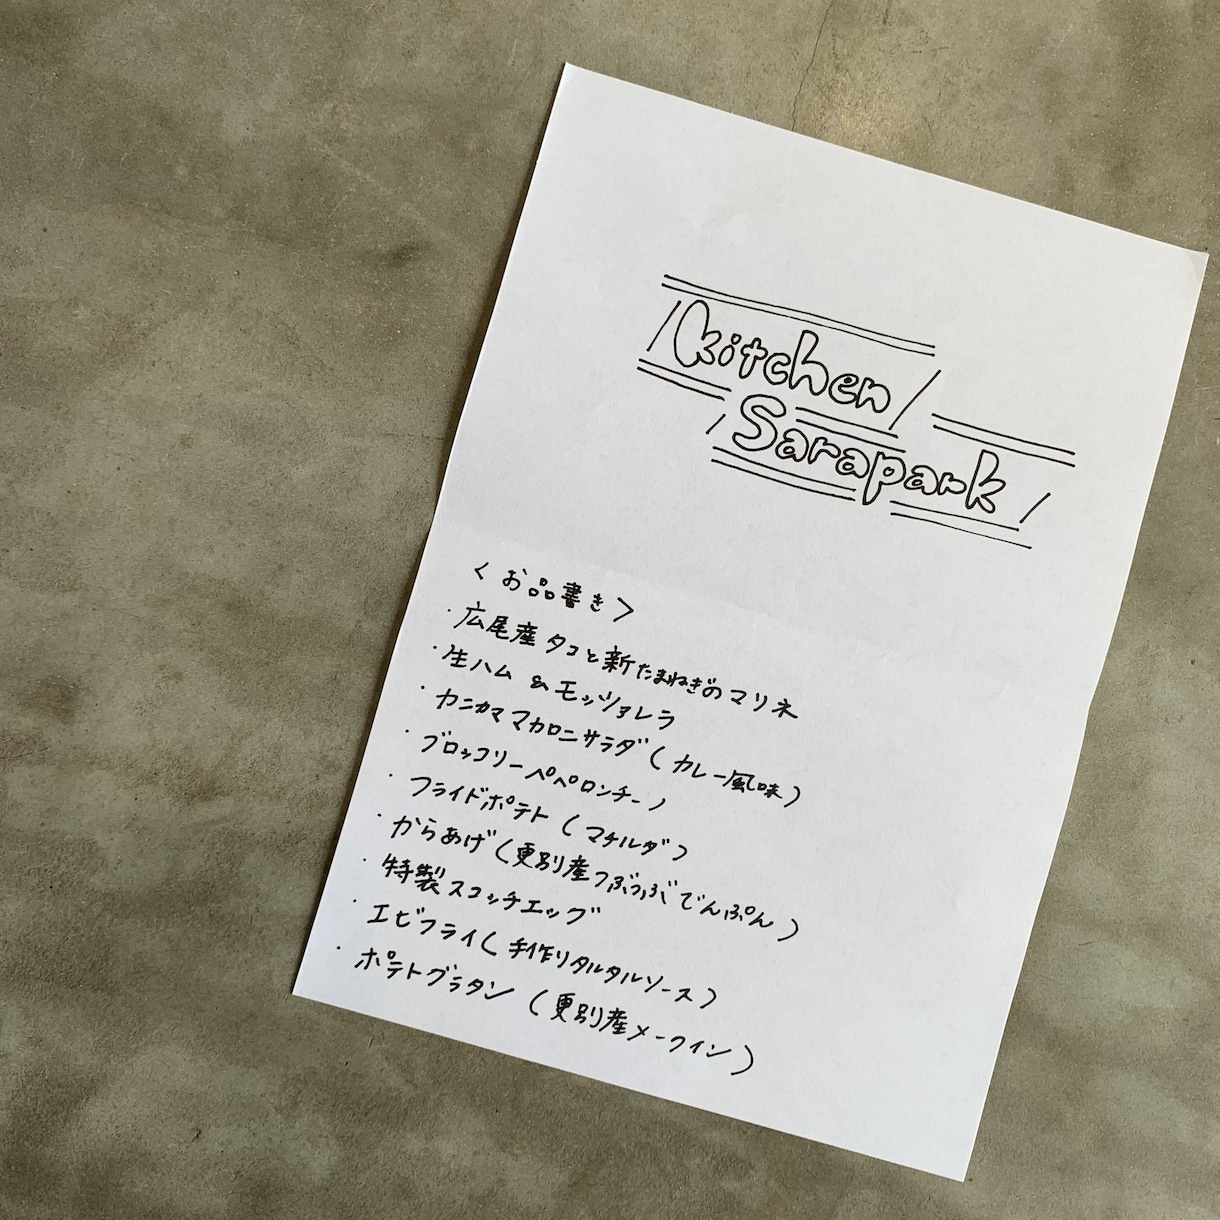 Kitchen
Sarapark
<お品書き>
・広尾産タコと新たまねぎのマリネ
・生ハム & モッツァレラ
・カニカママカロニサラダ(カレー風味)
・ブロッコリーペペロンチーノ
・フライドポテト(マチルダ)
・からあげ(更別産つぶつぶでんぷん)
・特製スコッチエッグ
・エビフライ(手作りタルタルソース)
・ポテトグラタン(更別産メークイン)